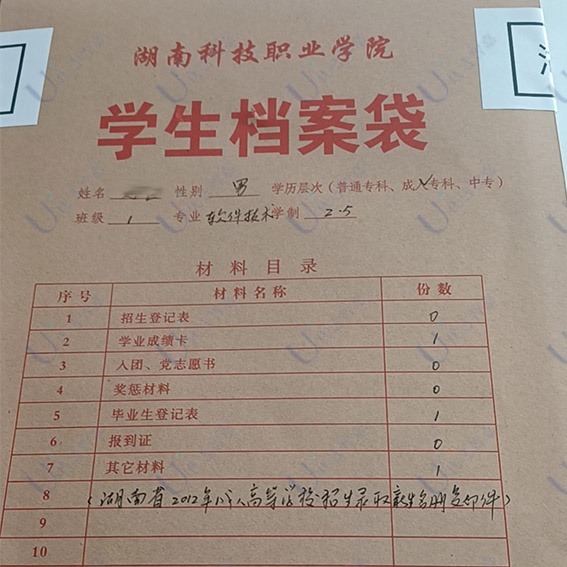 湖南科技职业学院
学生档案袋
姓名 性别 男 学历层次(普通专科、成人专科、中专)
班级 1 专业 软件技术 学制 2.5
材料目录
序号 材料名称 份数
1 招生登记表 0
2 学业成绩卡 1
3 入团、党志愿书 0
4 奖惩材料 0
5 毕业生登记表 1
6 报到证 0
7 其它材料 1
8 (湖南省2012年成人高等学校招生录取新生名册复印件)
9
10